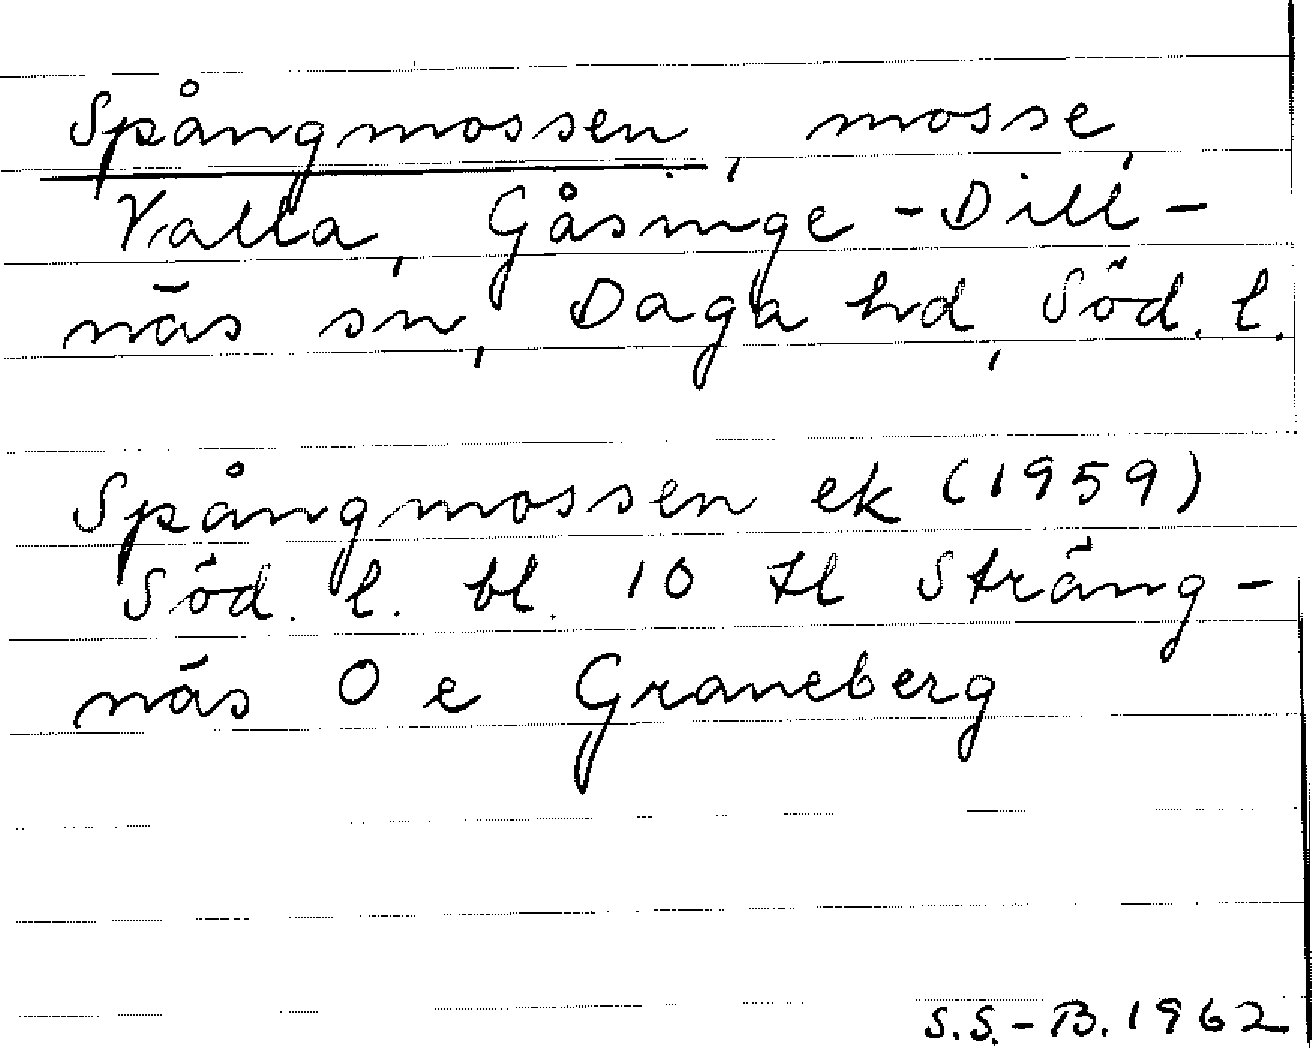 Spångmossen, mosse,
Valla, Gåsinge-Dill-
näs sn, Daga hd, Söd. l.
Spångmossen ek (1959)
Söd. l. bl. 10 tl Sträng-
näs O e Graneberg
S.S.-B. 1962